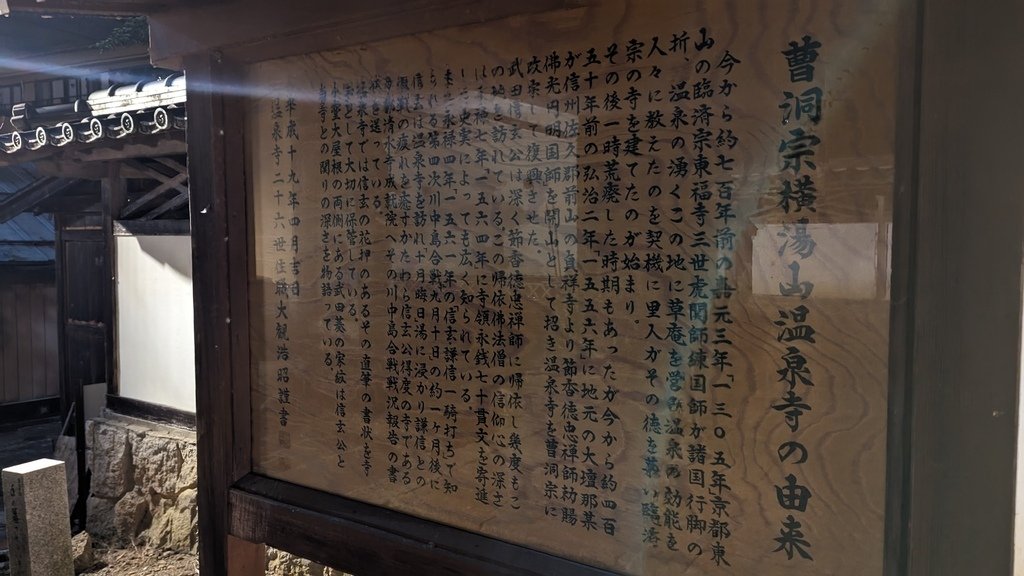 曹洞宗横湯山温泉寺の由来
今から約七百年前の嘉元三年「一三〇五年京都東
山の臨済宗東福寺三世虎関師錬国師が諸国行脚の
折、温泉の湧くこの地に草庵を営み温泉の効能を
人々に教えたのを契機に里人がその徳を慕い臨済
宗の寺を建てたのが始まり。
その後一時荒廃した時期もあったが今から約四百
五十年前の弘治二年「一五五六年」に地元の大壇那
が信州佐久郡前山の貞祥寺より節香徳忠禅師勅賜
佛光円明国師を開山として招き温泉寺を曹洞宗に
改宗して復興させた
武田信玄公は深く節香徳忠禅師に帰依し幾度もこ
の地を訪れている。この帰依佛法僧の信仰心の深さ
は永禄七年「一五六四年」に寺領永銭七十貫文を寄進
した史実によっても広く知られている。
また永禄四年「一五六一年」の信玄謙信一騎打ちで知
られる第四次川中島合戦九月十日の約一ヶ月後に
信玄は温泉寺を訪れ十月晦日湯に浸かり謙信との
激戦の疲れを癒すかたわら信玄公得度の寺である
京都清水寺成就院へその川中島合戦戦況報告の書
状を送っている。
温泉寺では信玄の花押のあるその直筆の書状を寺
宝として大切に保管している。
本堂大屋根の両側にある武田菱の家紋は信玄公と
当寺との関りの深さを物語っている。
平成十九年四月吉日
温泉寺二十六世住職大観浩昭謹書